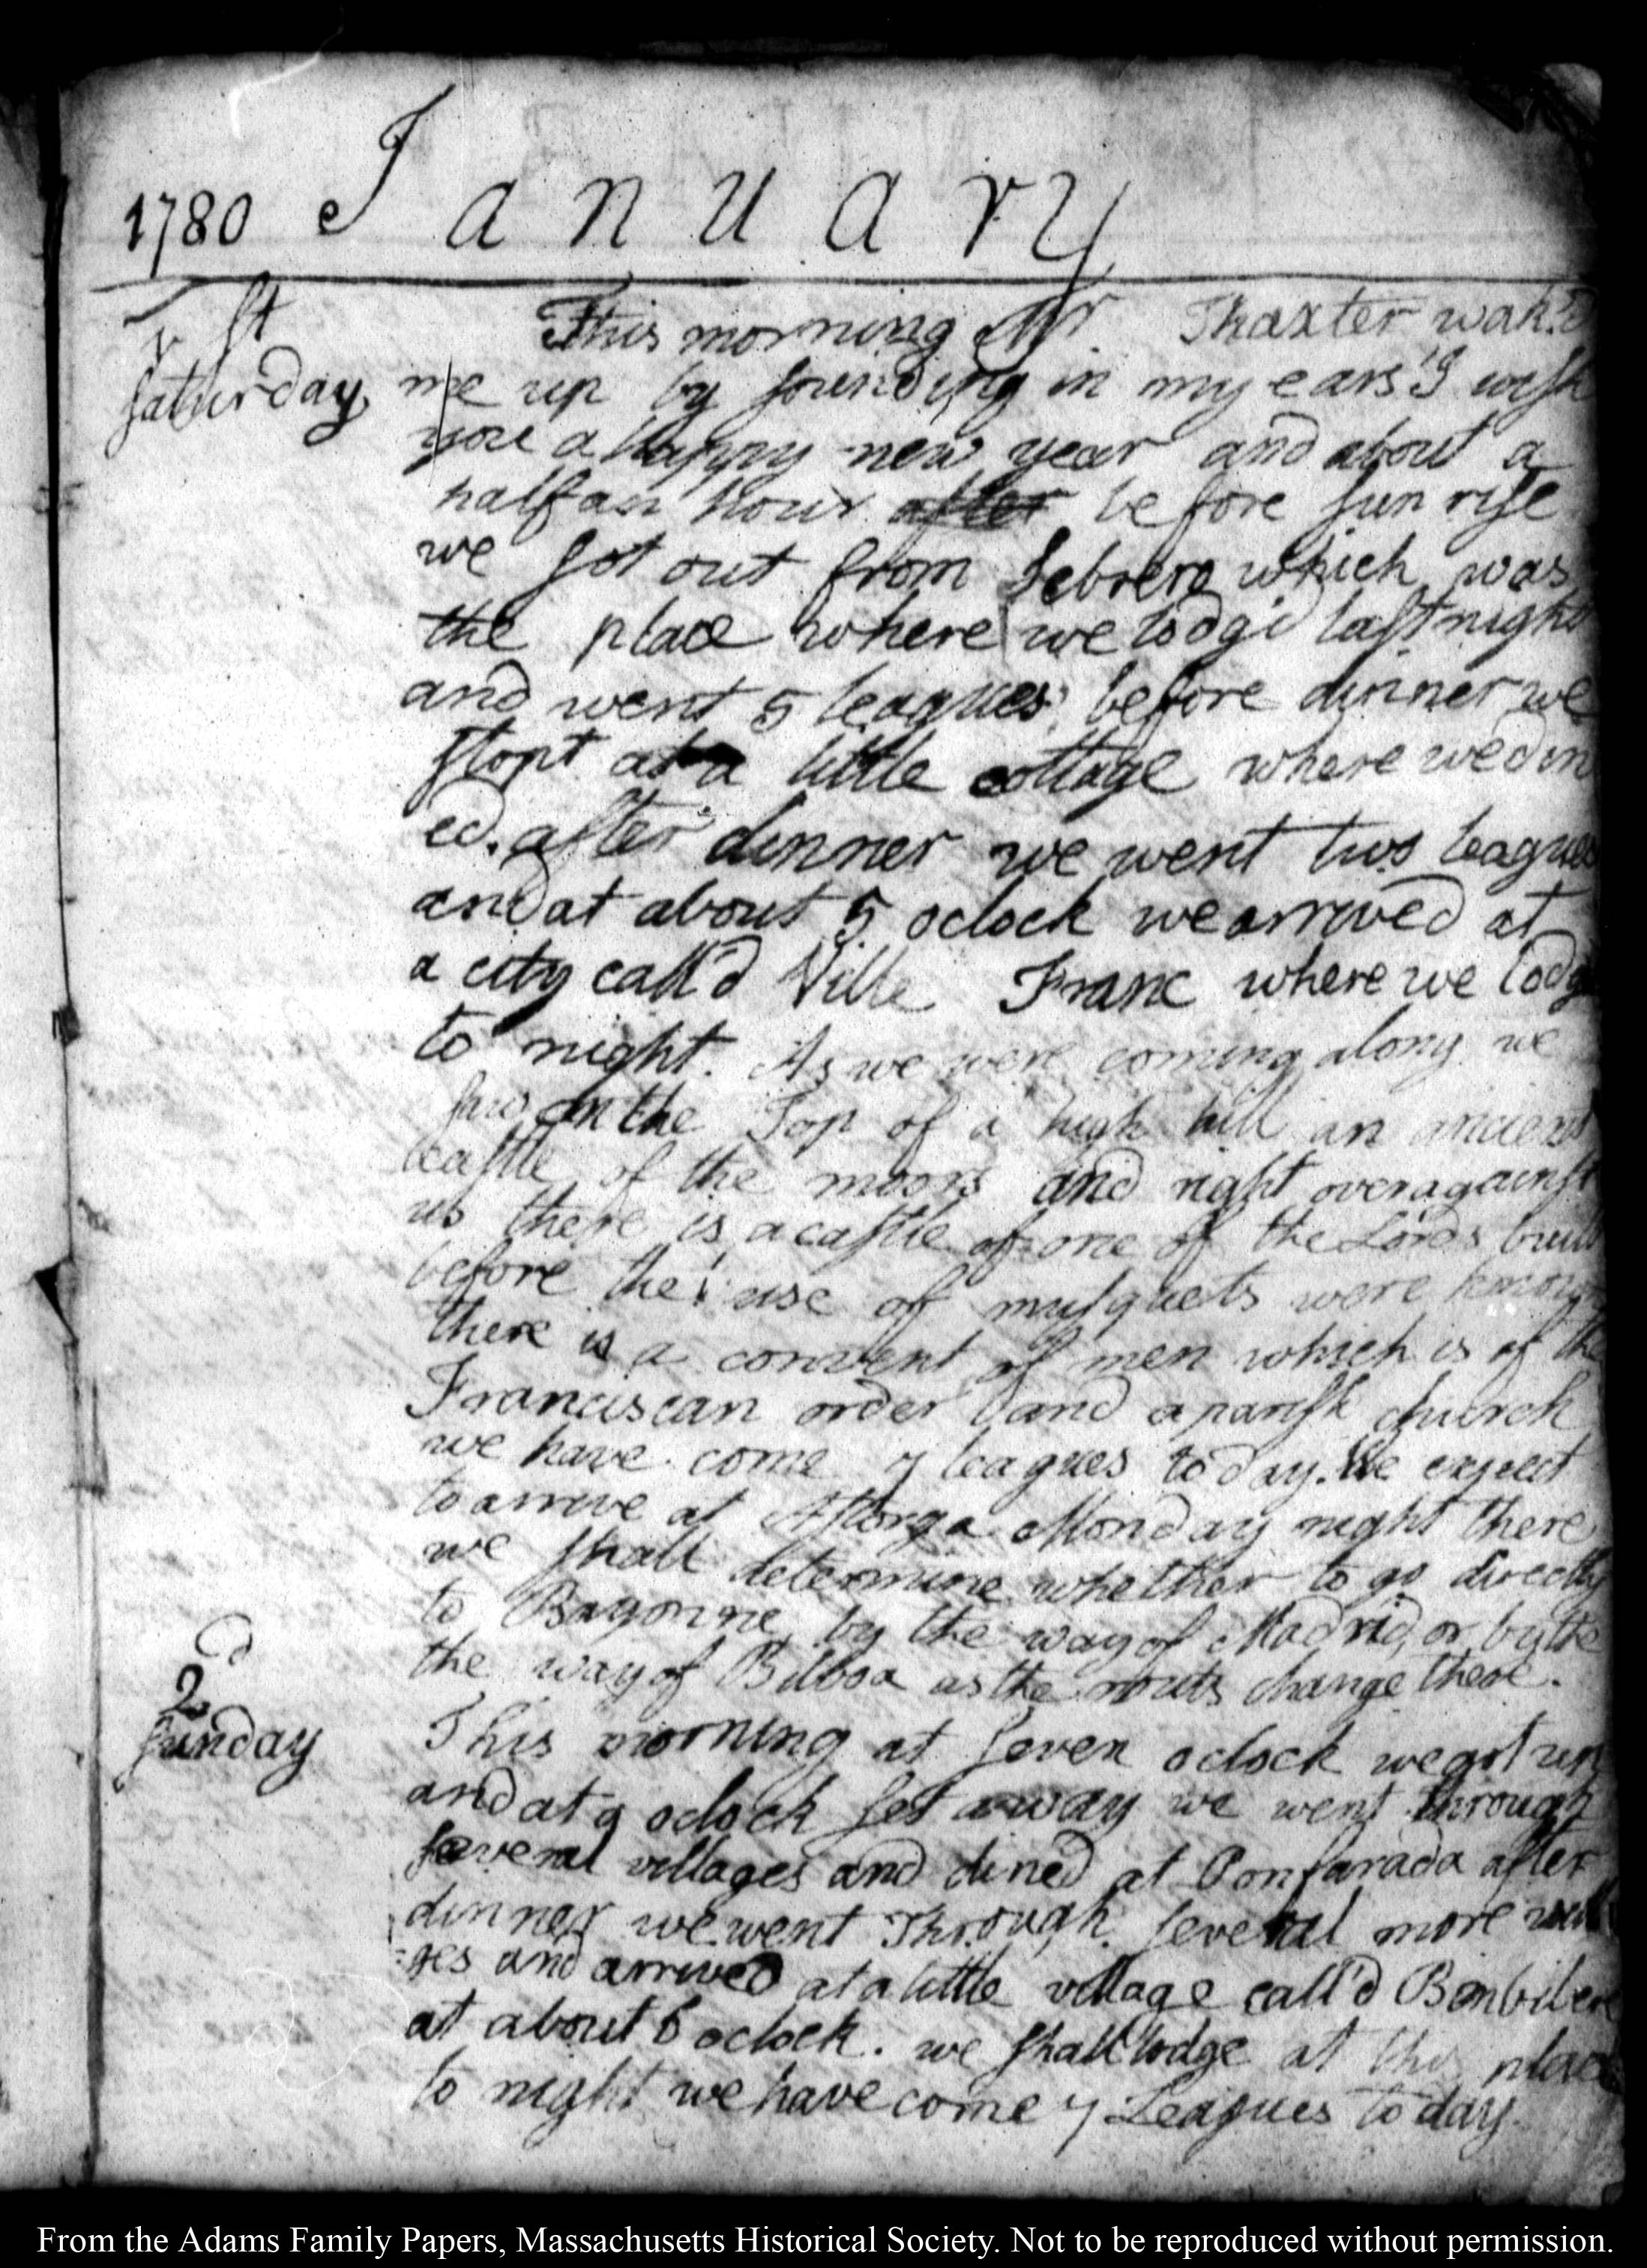 1780 January
1st This morning Mr. Thaxter wak'd
Saturday me up by sounding in my ears I wish
you a Happy new year and about a
half an hour after before sun rise
we sot out from Sebrero which was
the place where we lodg'd last night
and went 5 leagues before dinner we
stopt at a little cottage where we din
ed. after dinner we went two leagues
and at about 5 oclock we arrived at
a city call'd Ville Franc where we lodge
to night. As we were coming along we
saw on the Top of a high hill an ancient
castle of the moors and right overagainst
us there is a castle of one of the Lords built
before the use of musquets were known
there is a convent of men which is of the
Franciscan order and a parish church
we have come 7 leagues to day. We expect
to arrive at Astorga Monday night there
we shall determine whether to go directly
to Bayonne by the way of Madrid, or by the
the way of Bilboa as the routs change there.
2d
Sunday This morning at seven oclock we got up
and at 9 oclock set away we went through
several villages and dined at Ponfarada after
dinner we went Through several more villa
=ges and arrived at a little village call'd
at about 6 oclock. we shall lodge at this place
to night we have come 7 Leagues to day.
From the Adams Family Papers, Massachusetts Historical Society. Not to be reproduced without permission.